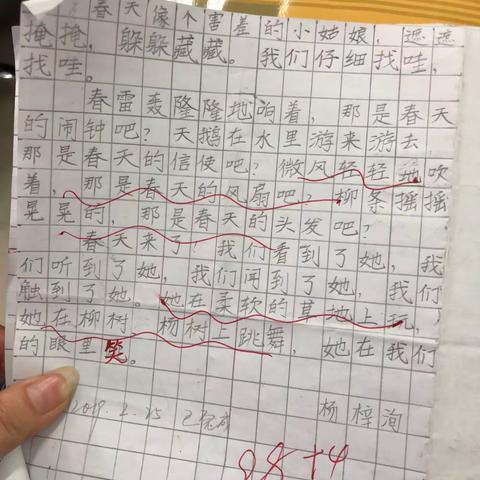 春天像个害羞的小姑娘，遮遮
掩掩，躲躲藏藏。我们仔细找哇，
找哇。
春雷轰隆隆地响着，那是春天
的闹钟吧？天鹅在水里游来游去，
那是春天的信使吧？微风轻轻地吹
着，那是春天的风扇吧？柳条摇摇
晃晃的，那是春天的头发吧？
春天来了！我们看到了她，我
们听到了她，我们闻到了她，我们
触到了她。她在柔软的草地上玩，
她在柳树、杨树上跳舞，她在我们
的眼里笑。
2019.2.25 杨梓洵
98+4